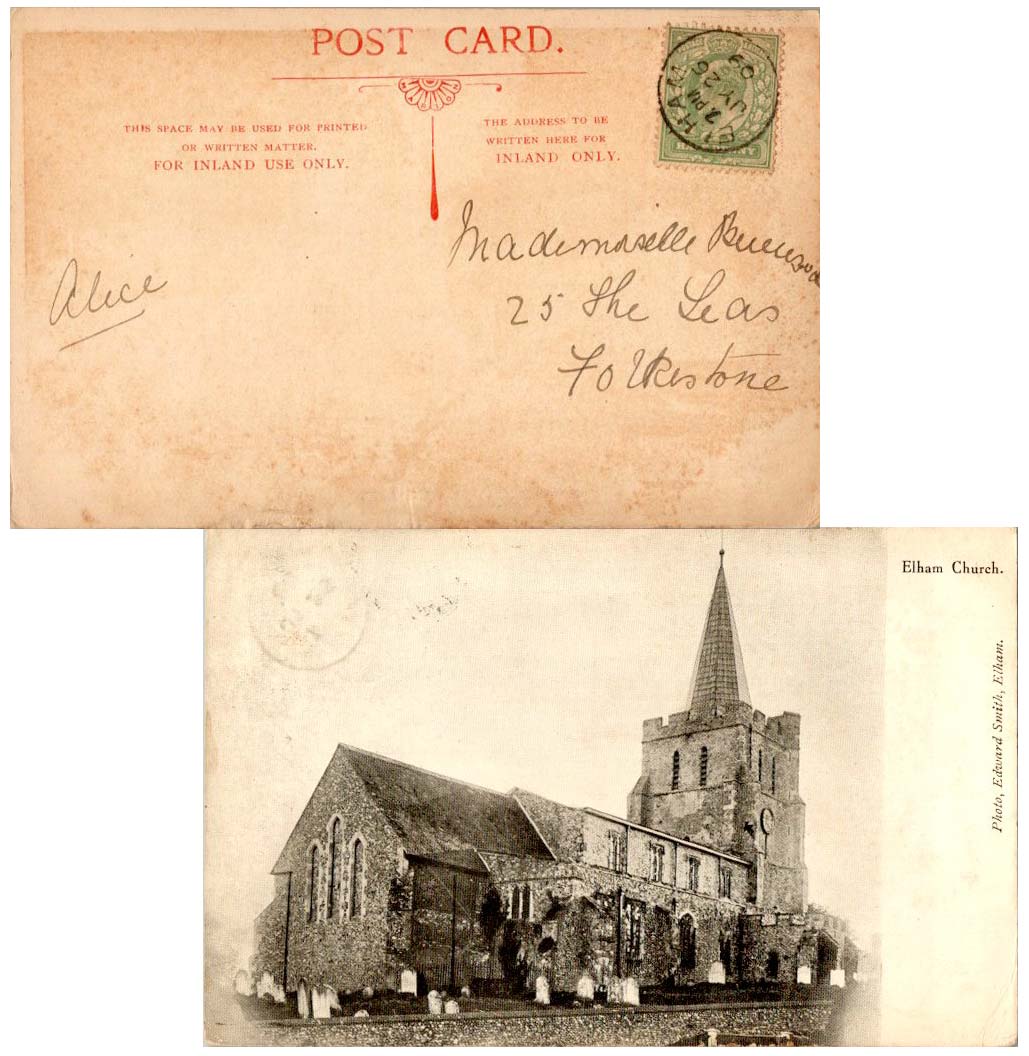 POST CARD.
THIS SPACE MAY BE USED FOR PRINTED
OR WRITTEN MATTER.
FOR INLAND USE ONLY.
THE ADDRESS TO BE
WRITTEN HERE FOR
INLAND ONLY.
ELHAM
7 PM
JY 26
09
Alice
Mademoiselle
25 The Leas
Folkestone
Elham Church.
Photo, Edward Smith, Elham.